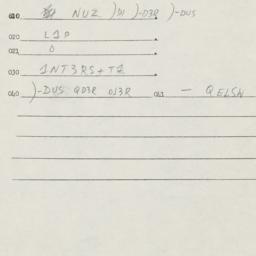 010 NUZ )DI )-D3R )-DUS
020 L1P
021 O
030 1NT3RS+T1
040 )-DUS QD3R OJ3R 041 — QELSN